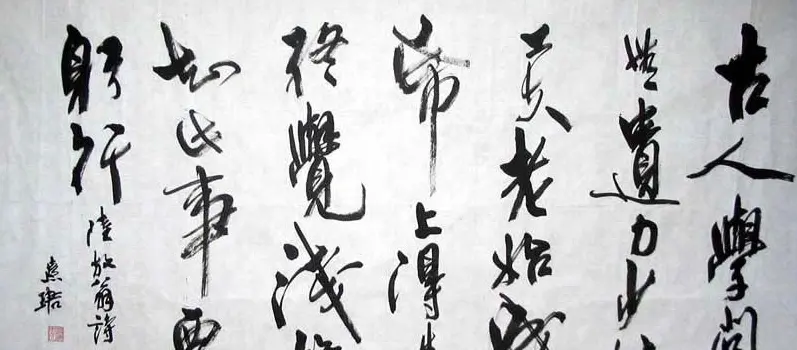 古人學問
無遺力少
工夫老始成
帋上得
終覺淺
知此事要
躬行
陸放翁詩